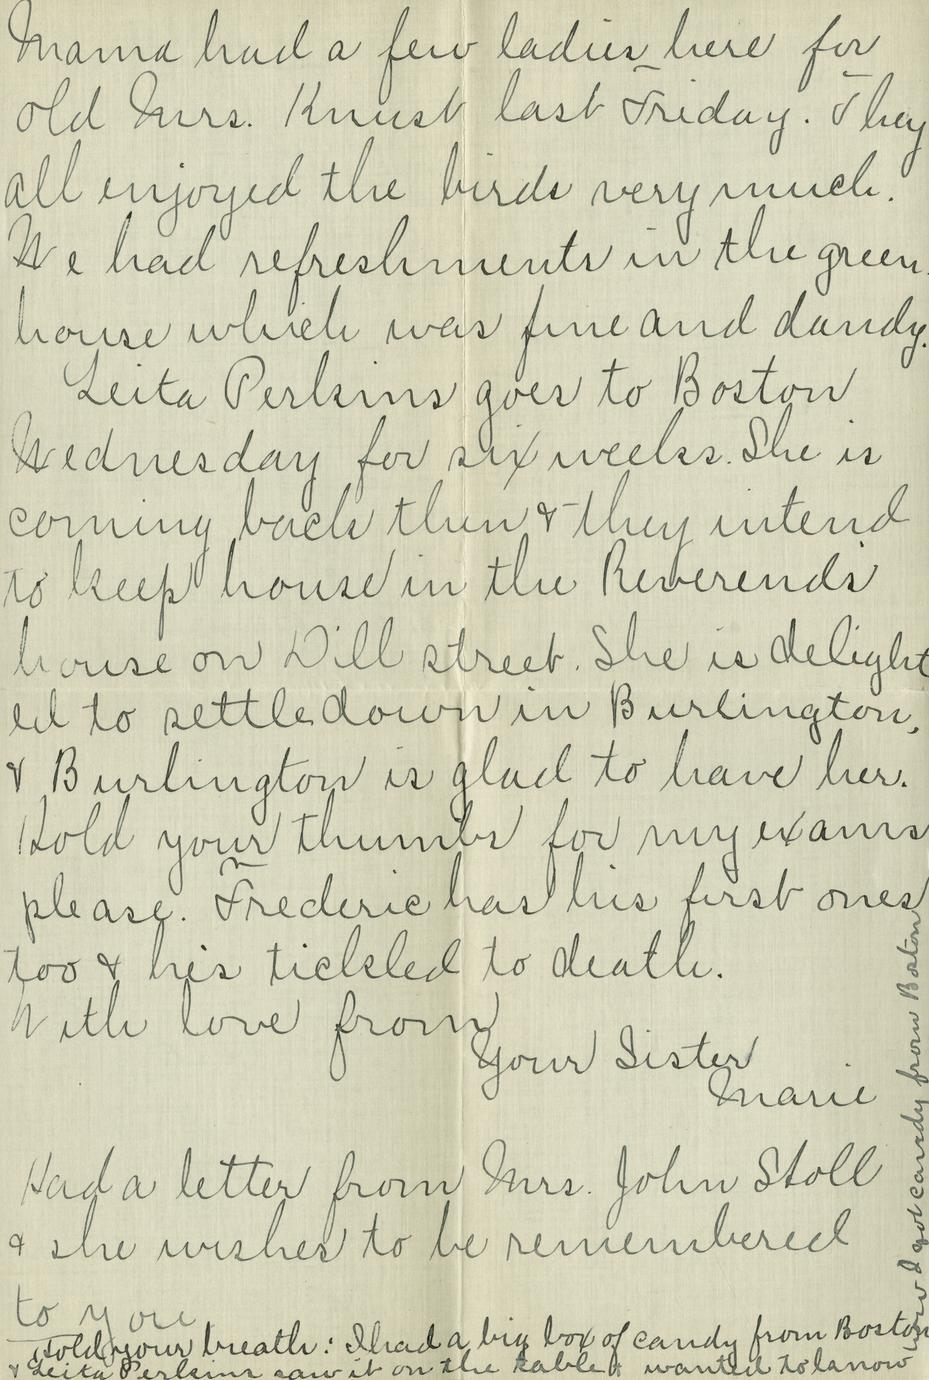 Mama had a few ladies here for
old Mrs. Knust last Friday. They
all enjoyed the birds very much.
We had refreshments in the green-
house which was fine and dandy.
Leita Perkins goes to Boston
Wednesday for six weeks. She is
coming back then & they intend
to keep house in the Reverends
house on Dill street. She is delight
ed to settle down in Burlington,
& Burlington is glad to have her.
Hold your thumbs for my exams
please. Frederic has his first ones
too & his tickled to death.
With love from
Your Sister
Marie
Had a letter from Mrs. John Stoll
& she wishes to be remembered
to you.
Hold your breath: I had a big box of candy from Boston
& Leita Perkins saw it on the table & wanted to know
how I got candy from Boston